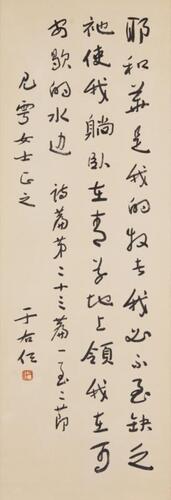 耶和華是我的牧者我必不至缺乏
祂使我躺臥在青草地上領我在可
安歇的水边 詩篇第二十三篇一至二節
女士正之
于右任